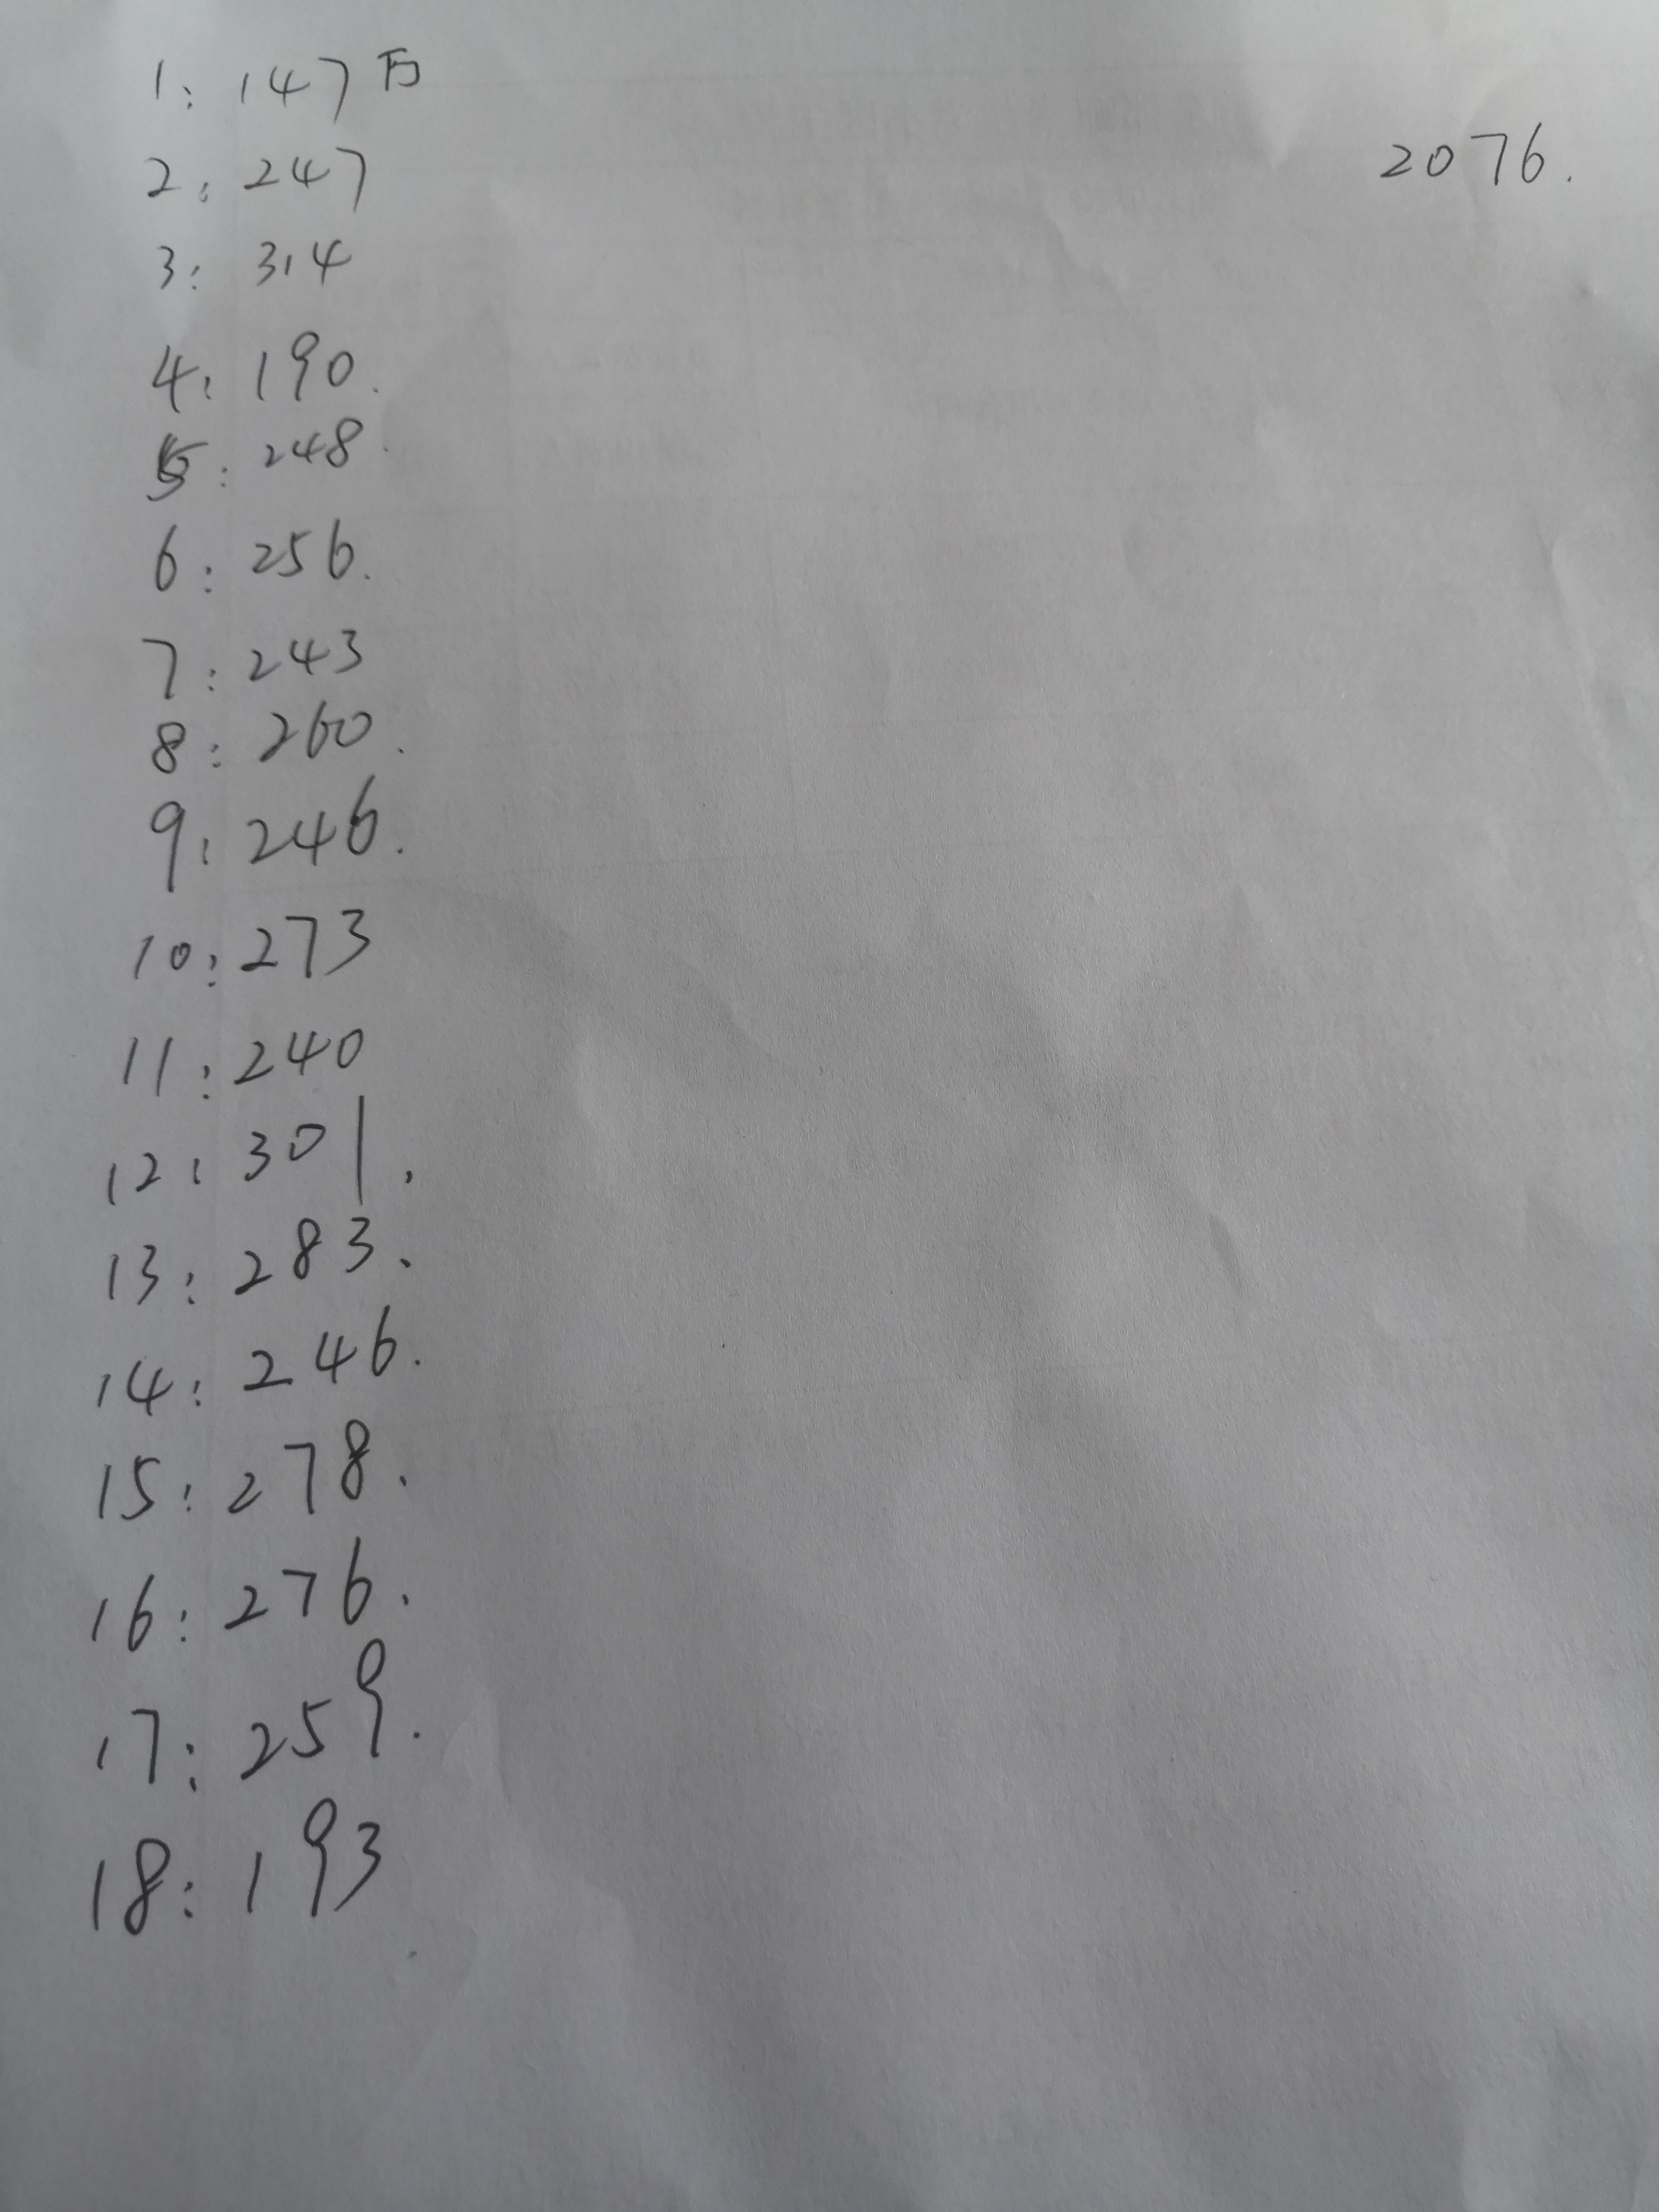 1: 147万
2: 247
2076.
3: 314
4: 190.
5: 248.
6: 256.
7: 243
8: 260.
9: 246.
10: 273
11: 240
12: 301.
13: 283.
14: 246.
15: 278.
16: 276.
17: 259.
18: 193